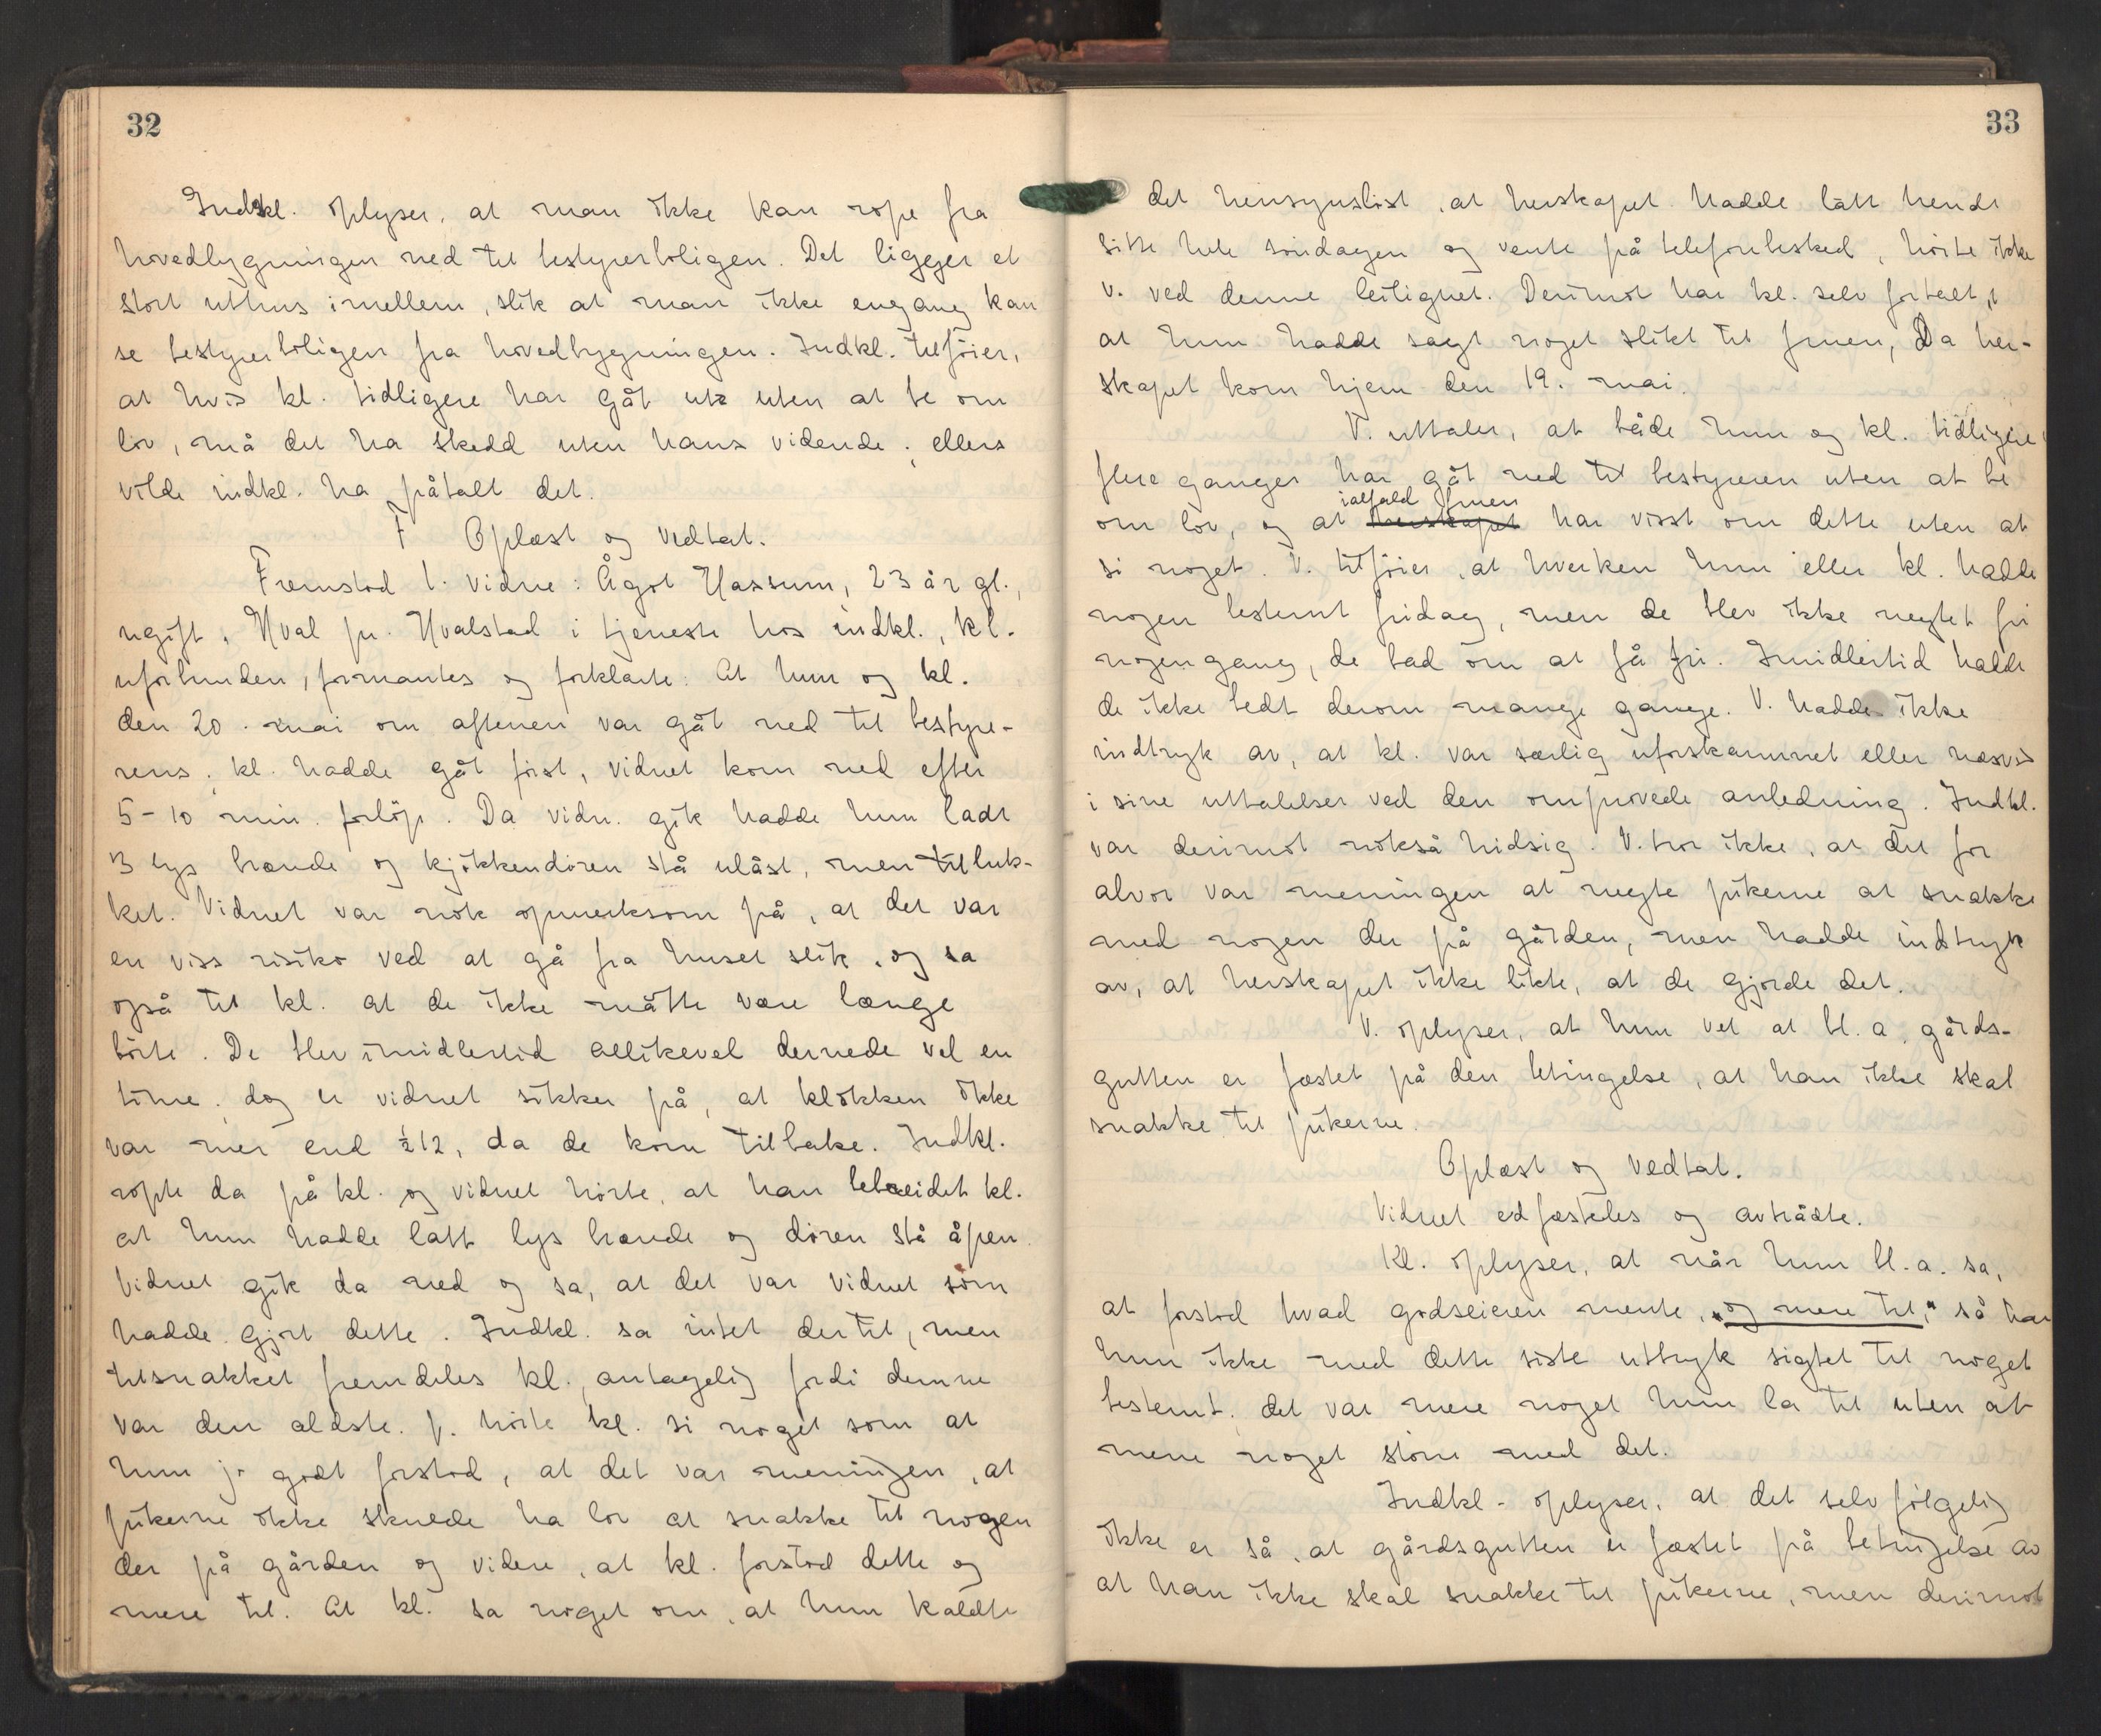 32
Indkl. oplyser, at man ikke kan rope fra
hovedbygningen ned til bestyrerboligen. Det ligger et
stort uthus imellem, slik at man ikke engang kan
se bestyrerboligen fra hovedbygningen. Indkl. tilföier,
at hvis kl. tidligere har gåt ut uten at be om
lov, må det ha skedd uten hans vidende, ellers
vilde indkl. ha påtalt det.
Oplæst og vedtat.
Fremstod 1. vidne: Ågot Hassum, 23 år gl.,
ugift, Hval pr. Hvalstad i tjeneste hos indkl., kl.
uforbunden, formantes og forklarte: At hun og kl.
den 20. mai om aftenen var gåt ned til bestyre-
rens. kl. hadde gåt först, vidnet kom ned efter
5-10 min. forlöp. Da vidn. gik hadde hun ladt
3 lys brænde og kjökkendören stå ulåst, men tilluk-
ket. Vidnet var nok opmerksom på, at det var
en viss risiko ved at gå fra huset slik, og sa
også til kl. at de ikke måtte være længe
borte. De blev imidlertid allikevel dernede vel en
time. dog er vidnet sikker på, at klokken ikke
var mer end ½12, da de kom tilbake. Indkl.
ropte da på kl. og vidnet hörte, at han bebreidet kl.
at hun hadde latt lys brænde og dören stå åpen.
Vidnet gik da ned og sa, at det var vidnet som
hadde gjort dette. Indkl. sa intet dertil, men
tilsnakket fremdeles kl., antagelig fordi denne
var den ældste. V. hörte kl. si noget som at
hun jo godt forstod, at det var meningen, at
pikerne ikke skulde ha lov at snakke til nogen
der på gården og videre, at kl. forstod dette og
mere til. At kl. sa noget om, at hun kaldte
33
det hensynslöst, at herskapet hadde latt hende
sitte hele söndagen og vente på telefonbesked, hörte ikke
v. ved denne leilighet. Derimot har kl. selv fortalt,
at hun hadde sagt noget slikt til fruen, Da her-
skapet kom hjem den 19. mai.
V. uttaler, at både hun og kl. tidligere
flere ganger har gåt ned til bestyreren uten at be
ialfald fruen
om lov, og at herskapet har visst om dette uten at
si noget. V. tilföier, at hverken hun eller kl. hadde
nogen bestemt fridag, men de blev ikke negtet fri
nogengang, de bad om at få fri. Imidlertid hadde
de ikke bedt derom mange gange. V. hadde ikke
indtryk av, at kl. var særlig uforskammet eller næsvis
i sine uttalelser ved den omprovede anledning. Indkl.
var derimot nokså hidsig. V. tror ikke, at det for
alvor var meningen at negte pikerne at snakke
med nogen der på gården, men hadde indtryk
av, at herskapet ikke likte, at de gjorde det.
V. oplyser, at hun vet at bl. a. gårds-
gutten er fæstet på den betingelse, at han ikke skal
snakke til pikerne.
Oplæst og vedtat.
Vidnet edfæstedes og avtrådte.
Kl. oplyser, at når hun bl. a. sa,
at forstod hvad godseieren mente, "og mere til," så har
hun ikke med dette siste uttryk sigtet til noget
bestemt. det var mere noget hun la til uten at
mene noget större med det.
Indkl. oplyser, at det selvfölgelig
ikke er så, at gårdsgutten er fæstet på betingelse av
at han ikke skal snakke til pikerne, men derimot